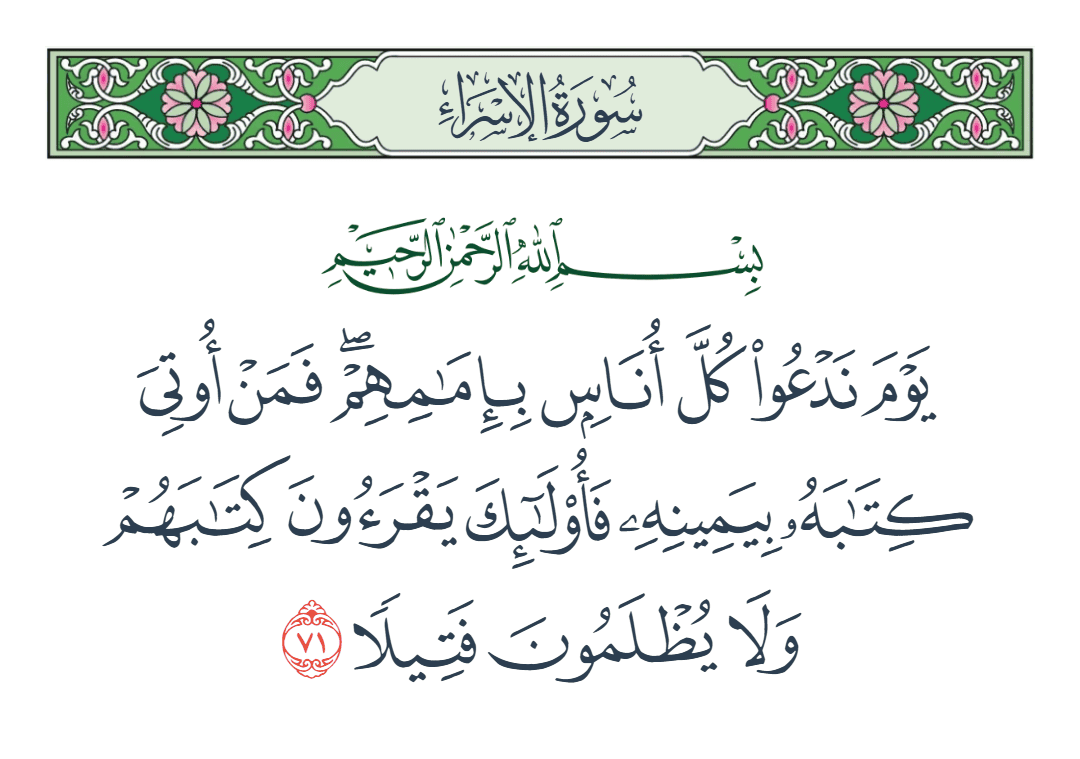 سُورَةُ الإِسْرَاءِ
بِسْمِ ٱللَّهِ ٱلرَّحْمَٰنِ ٱلرَّحِيمِ
يَوْمَ نَدْعُوا۟ كُلَّ أُنَاسٍۭ بِإِمَٰمِهِمْ ۖ فَمَنْ أُوتِىَ
كِتَٰبَهُۥ بِيَمِينِهِۦ فَأُو۟لَٰٓئِكَ يَقْرَءُونَ كِتَٰبَهُمْ
وَلَا يُظْلَمُونَ فَتِيلًا ٧١